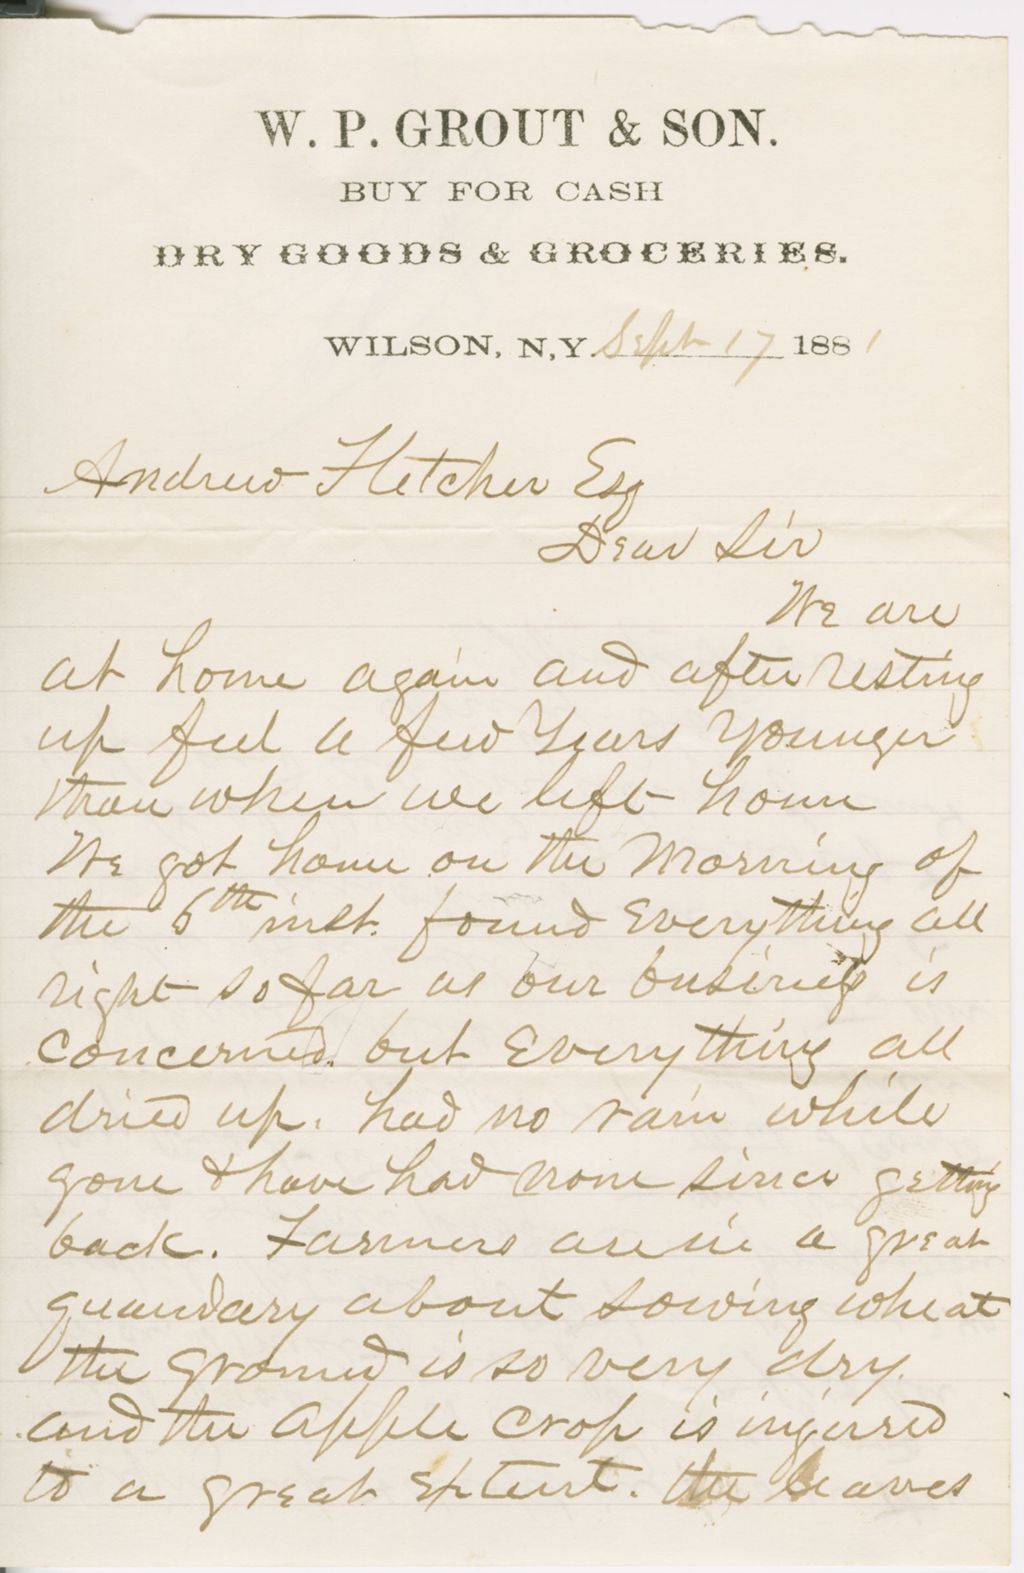 W. P. GROUT & SON.
BUY FOR CASH
DRY GOODS & GROCERIES.
WILSON, N.Y. Sept 17 1881
Andrew Fletcher Esq
Dear Sir
We are
at home again and after resting
up feel a few Years Younger
than when we left home
We got home on the Morning of
the 6th inst. found Everything all
right so far as our business is
Concerned. but Everything all
dried up. had no rain while
gone & have had none since getting
back. Farmers are in a great
quandary about sowing wheat
the ground is so very dry.
and the Apple Crop is injured
to a great Extent. the leaves